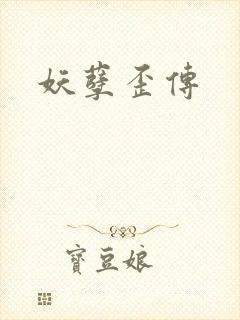 妖孽歪傳
寶豆娘